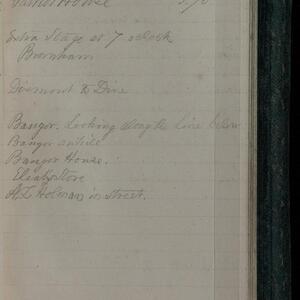 House
Extra Stage at 7 oclock
Burnham
Dixmont to Dixe
Bangor. Looking along the line below
Bangor
Bangor House.
Store
Holman in street.